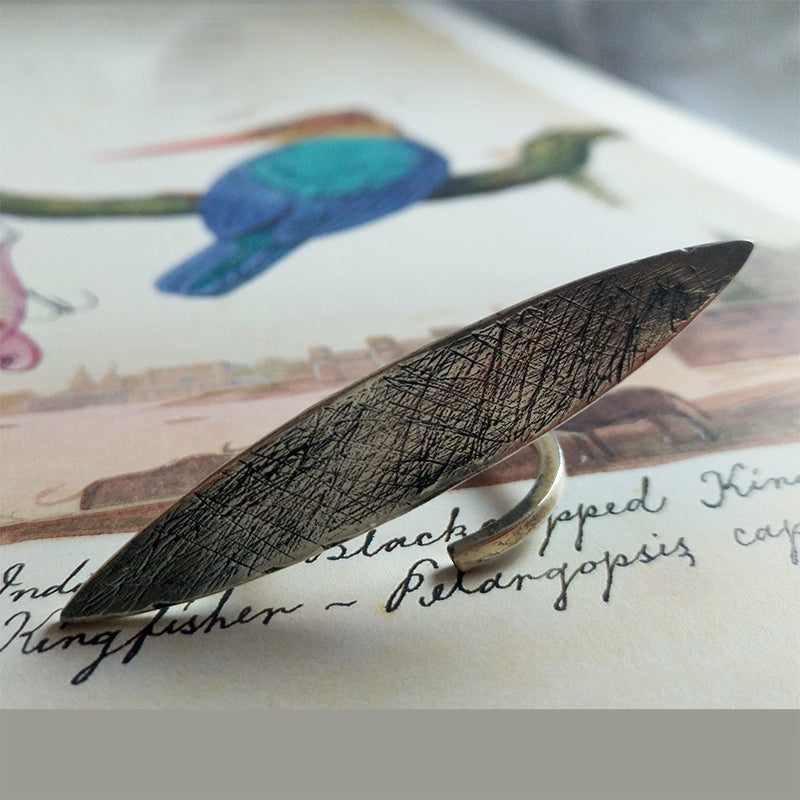 Black pped King
Kingfisher ~ Pelargopsis cap